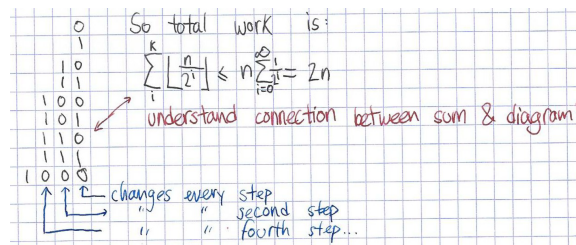 0
1
1 0
1 1
1 0 0
1 0 1
1 1 0
1 1 1
1 0 0 0
So total work is:
k
∑ ⌊n/2^i⌋ ≤ n ∑ 1/2^i = 2n
i
i=0
∞
understand connection between sum & diagram
changes every step
" " second step
" " fourth step...